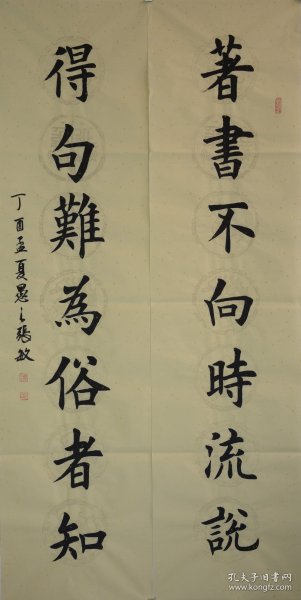 著書不向時流說
得句難為俗者知
丁酉孟夏
張敏
孔夫子旧书网